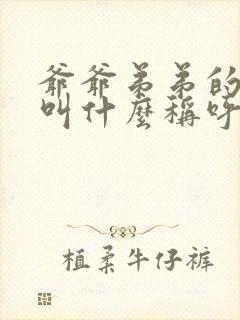 爺爺弟弟的
叫什麼稱呼
植柔牛仔裤